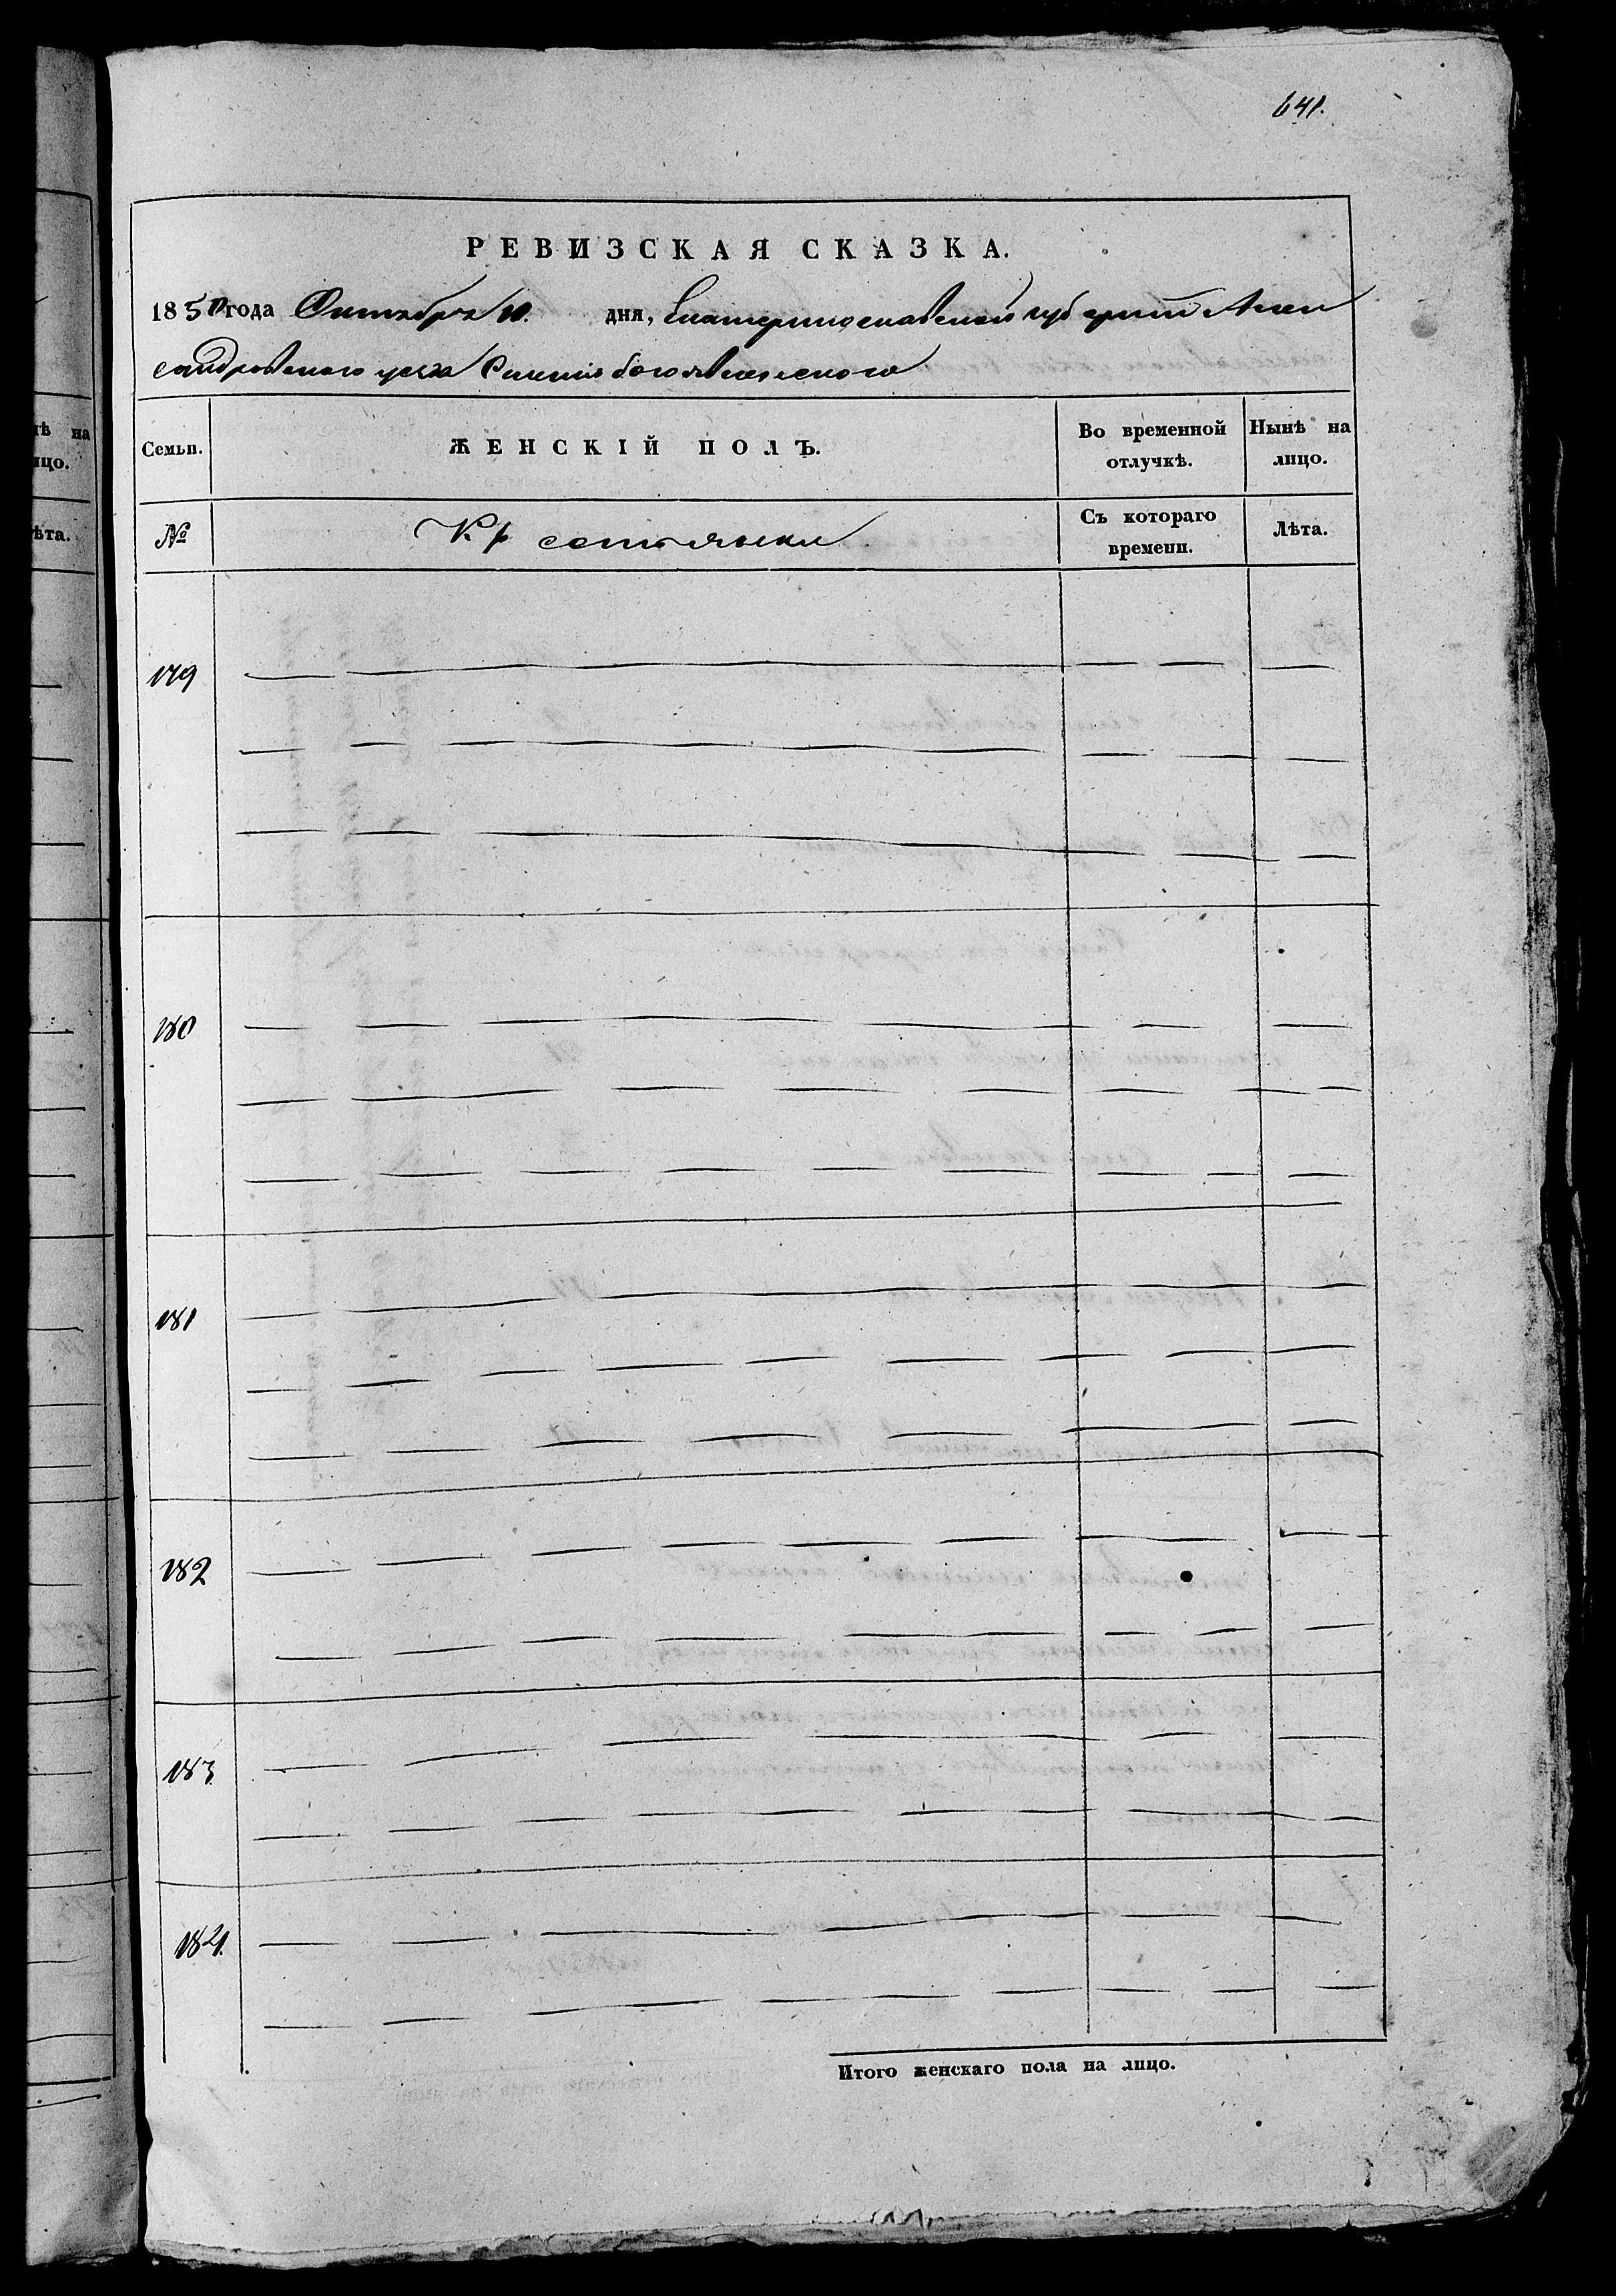 641.
РЕВИЗСКАЯ СКАЗКА.
1850 года Октября 10. дня, Екатеринославской губернии Алек
сандровского уезда Селения богоявленского
нѣ на
лицо.
лѣта.
Семьи.
ЖЕНСКІЙ ПОЛЪ.
Во временной отлучкѣ.
Нынѣ на лицо.
№
Крестьянки
Съ котораго времени.
Лѣта.
179
180
181
182
183
184.
Итого женскаго пола на лицо.